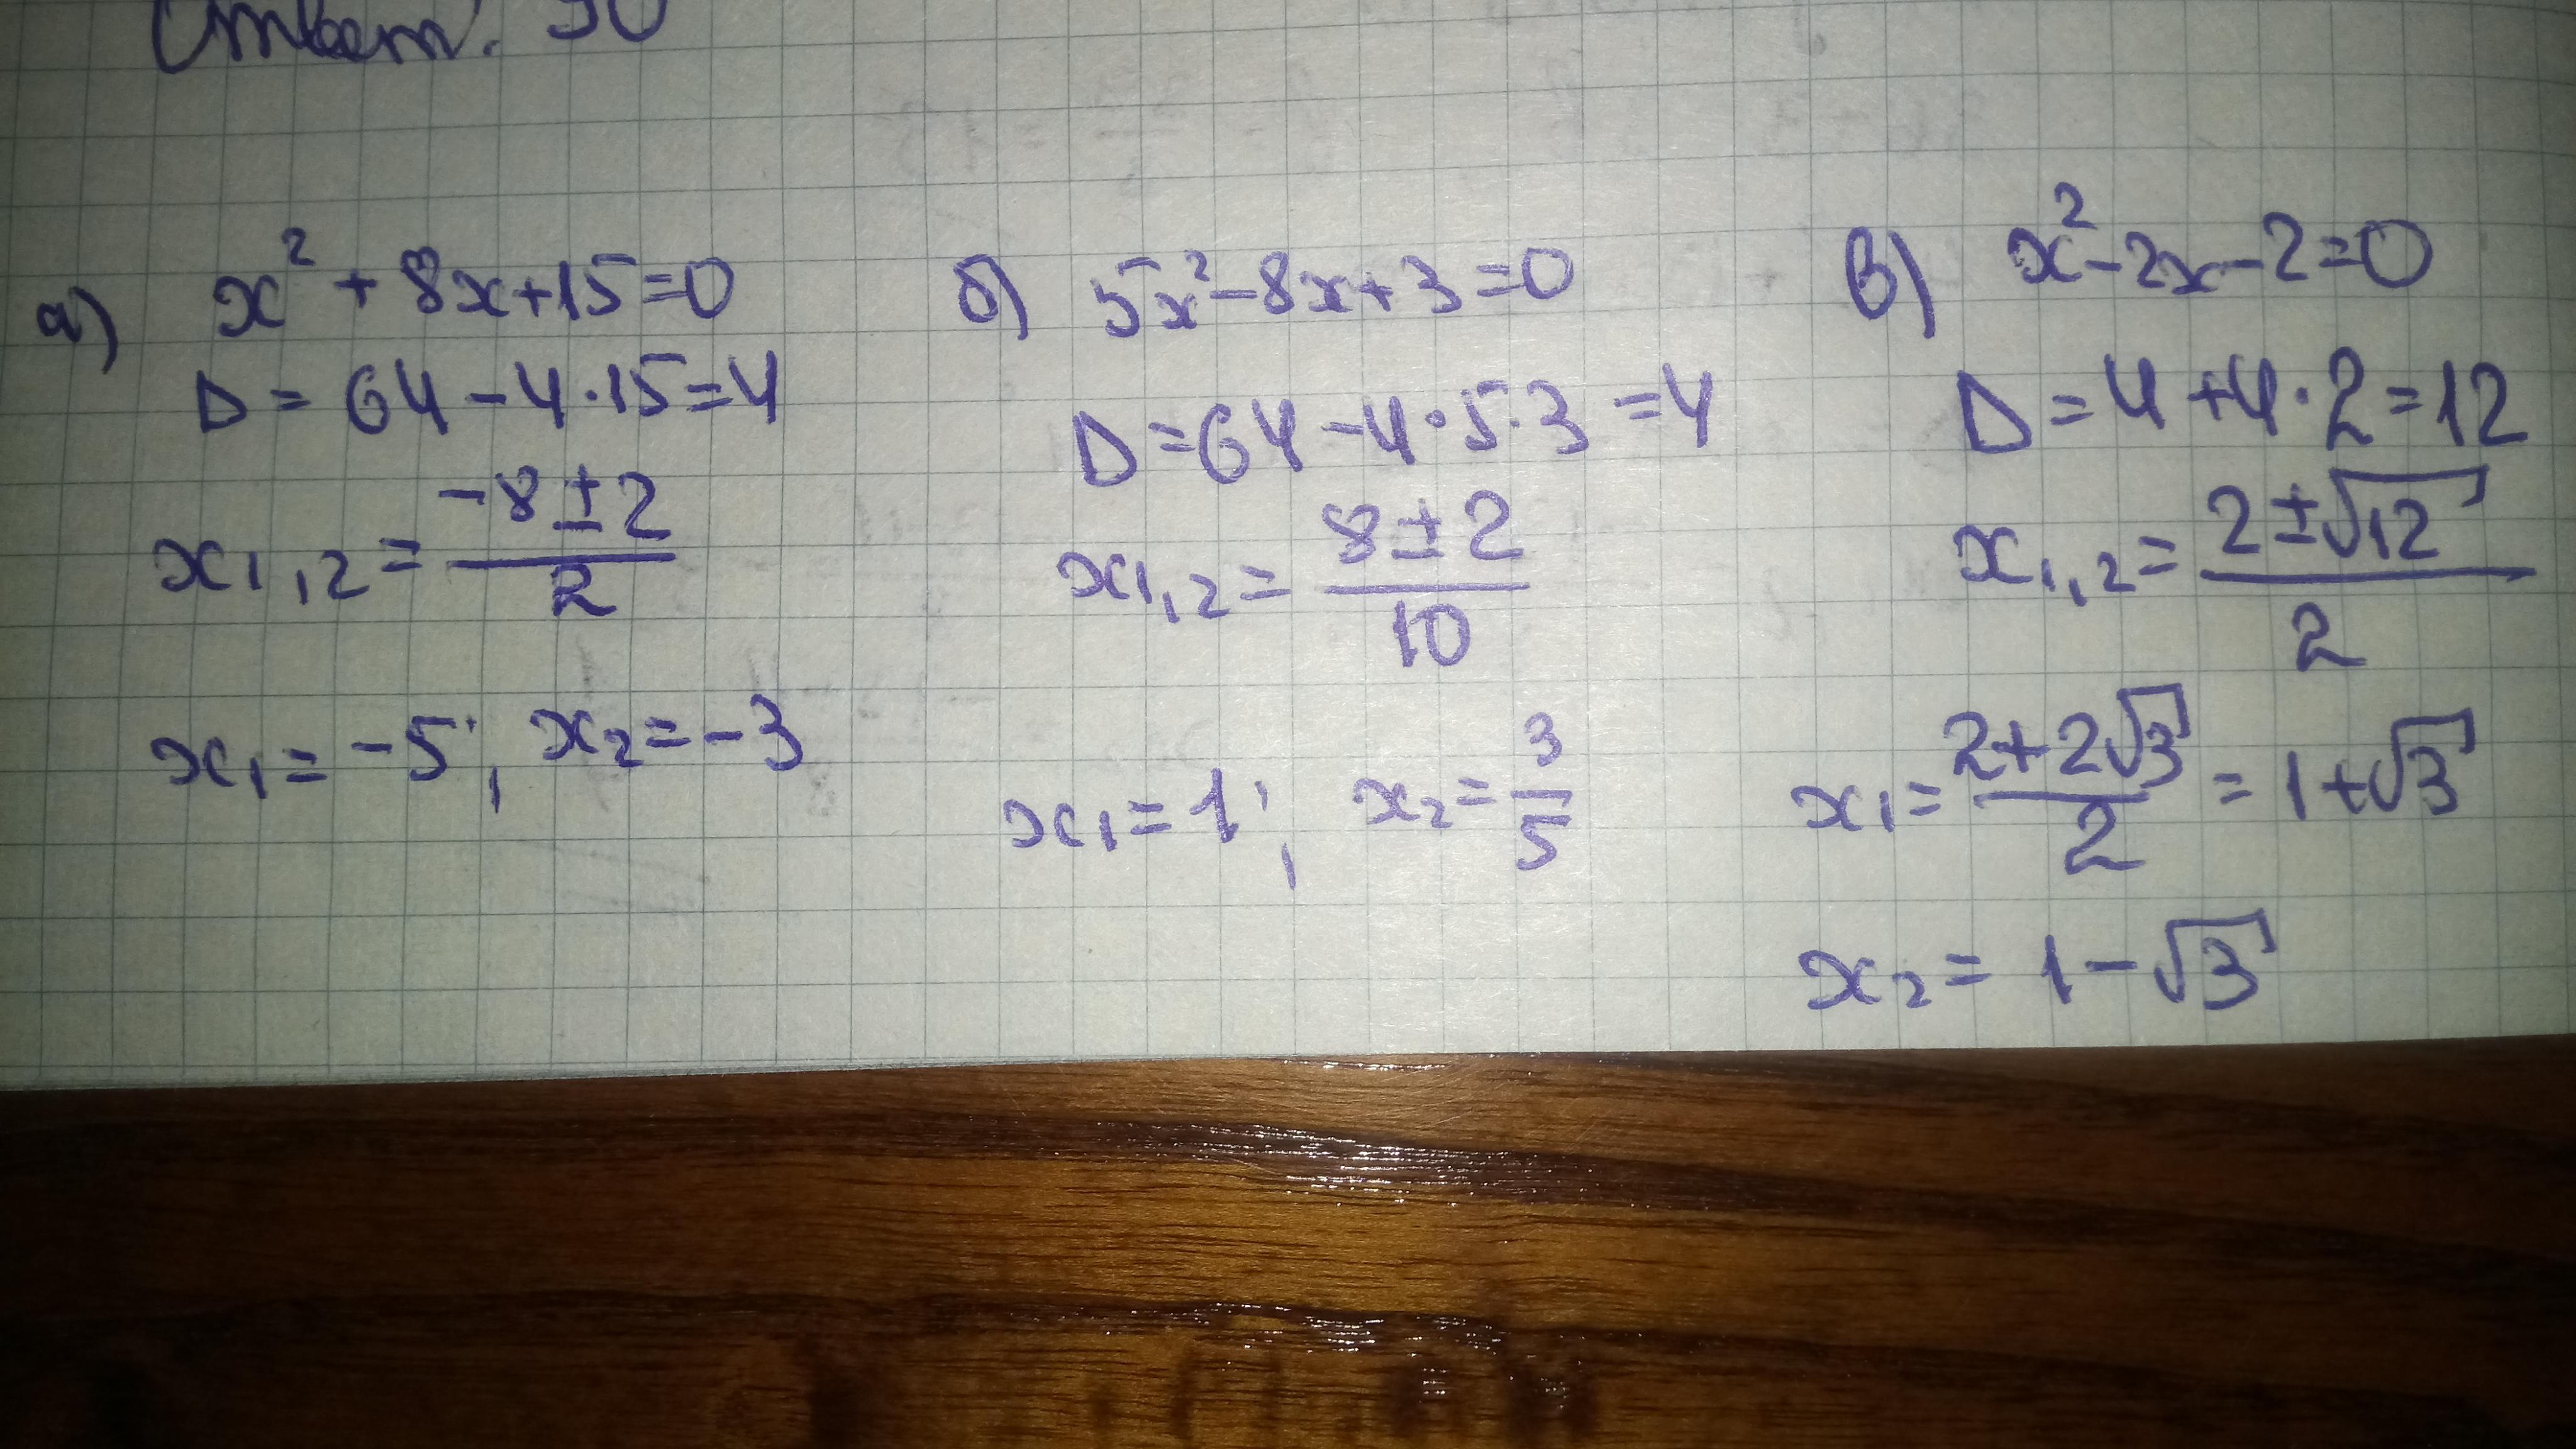 Ответ: 30
а) x² + 8x+15=0
D = 64 - 4·15=4
x₁,₂ = (-8 ± 2)/2
x₁ = -5; x₂ = -3
б) 5x²-8x+3=0
D=64-4·5·3=4
x₁,₂ = (8±2)/10
x₁=1; x₂=3/5
в) x²-2x-2=0
D=4+4·2=12
x₁,₂=(2±√12)/2
x₁=(2+2√3)/2=1+√3
x₂=1-√3